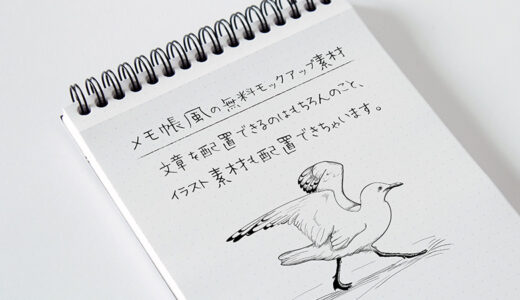 メモ帳風の無料モックアップ素材
文章を配置できるのはもちろんのこと、
イラスト素材も配置できちゃいます。